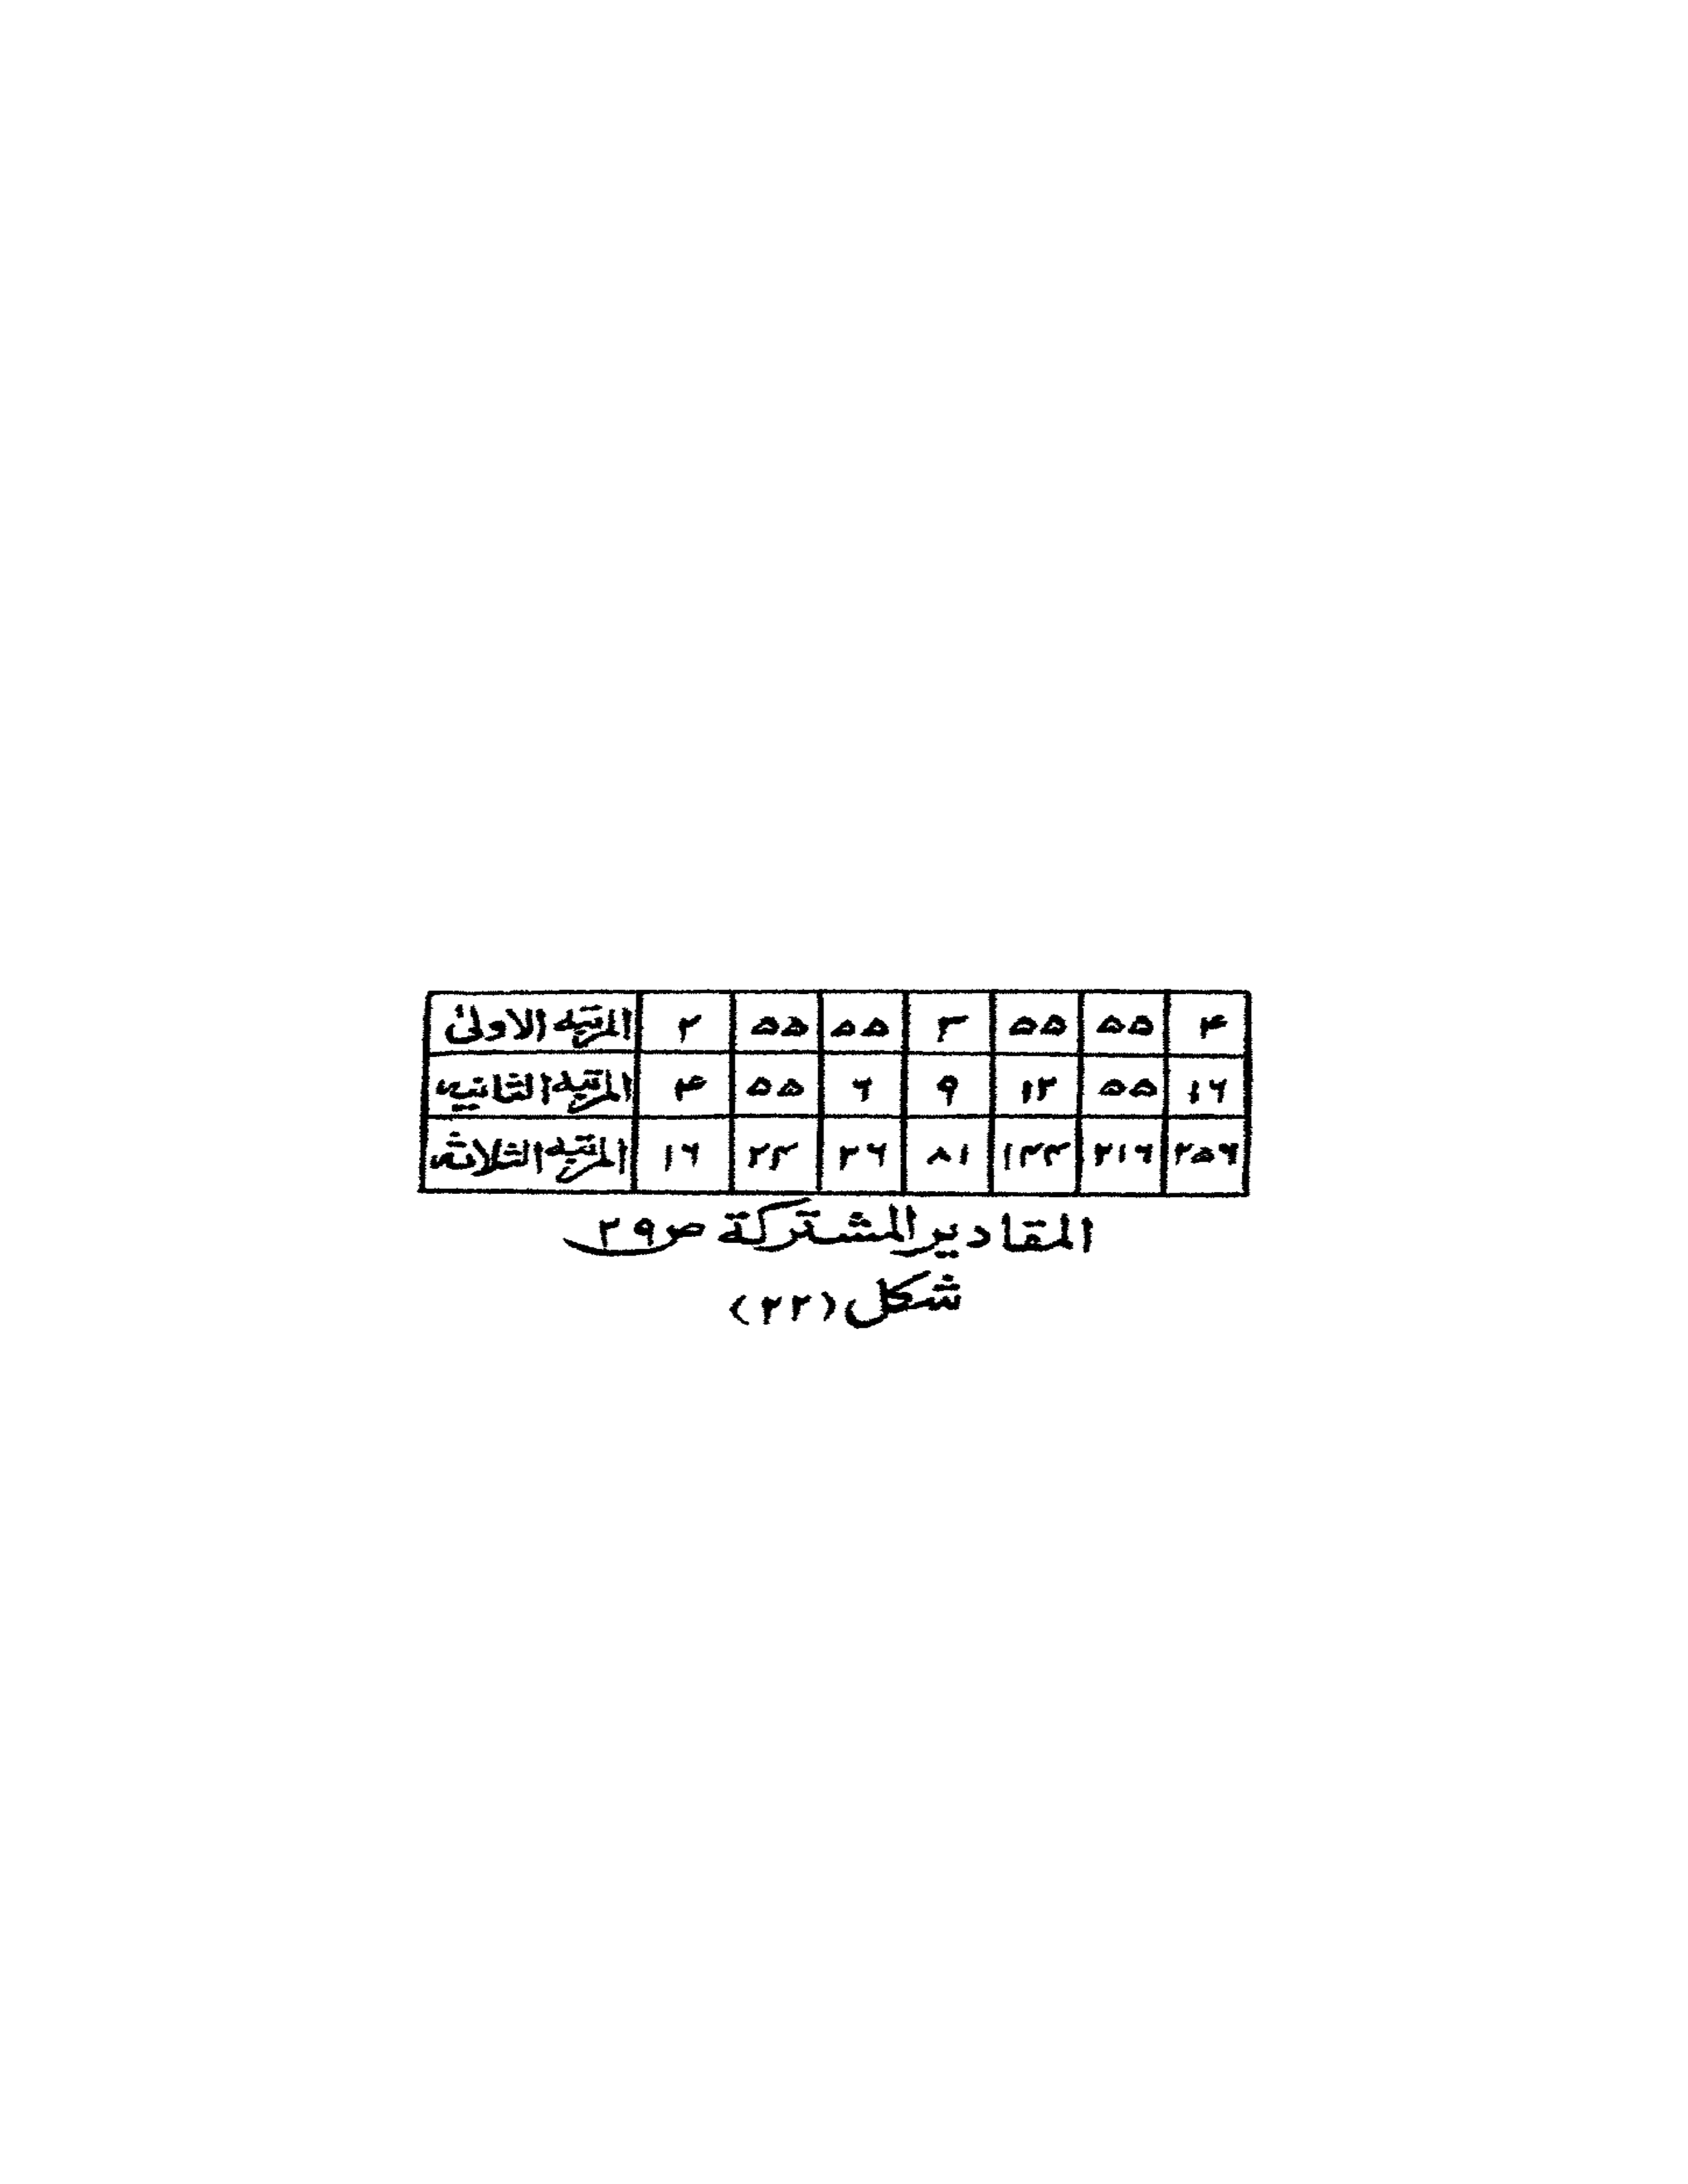 المرتبه الاولى ٢ ٥٥ ٥٥ ٣ ٥٥ ٥٥ ۴
المرتبه الثانيه ۴ ٥٥ ٦ ٩ ١٢ ٥٥ ١٦
المرتبه الثلاثه ١٦ ٢٣ ٣٦ ٨١ ١٣٣ ٢١٦ ٢٥٦
المقادير المشتركة ص ٢٩
شكل (٢٢)